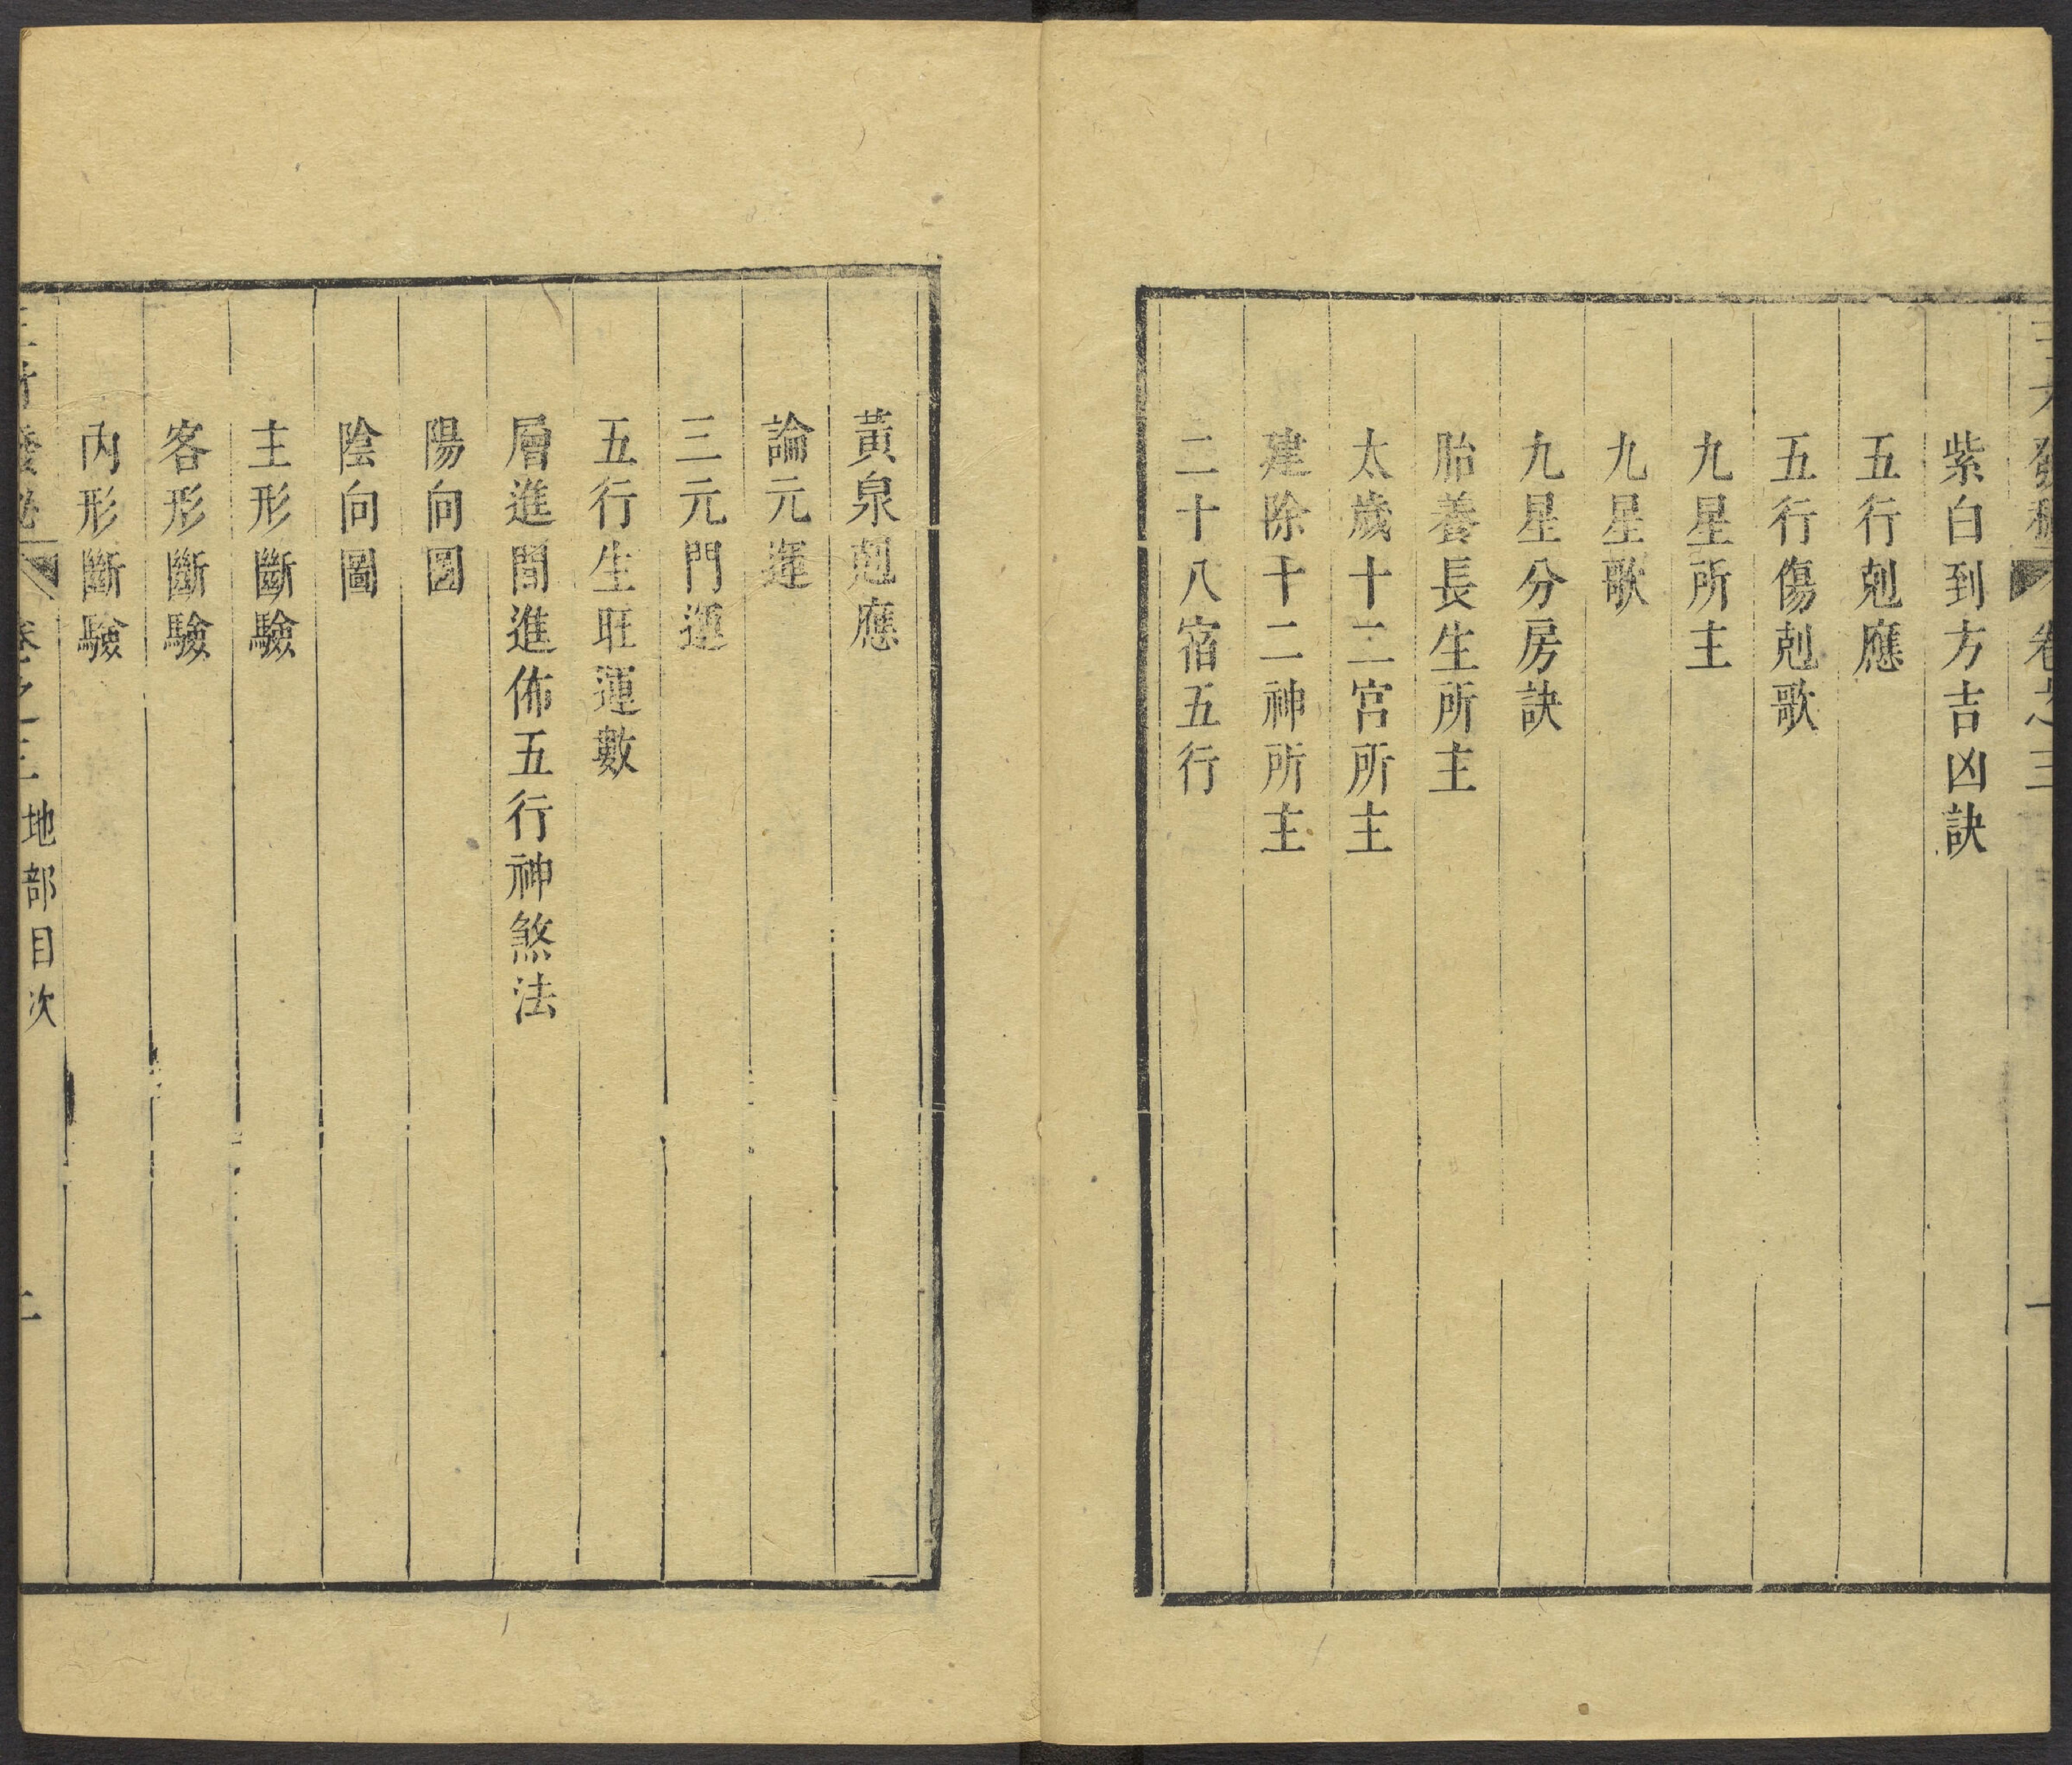 卷之三
一
紫白到方吉凶訣
五行剋應
五行傷剋歌
九星所主
九星歌
九星分房訣
胎養長生所主
太歲十二宮所主
建除十二神所主
二十八宿五行
黃泉剋應
論元運
三元門運
五行生旺運數
層進間進佈五行神煞法
陽向圖
陰向圖
主形斷驗
客形斷驗
內形斷驗
卷之三 地部目次
二